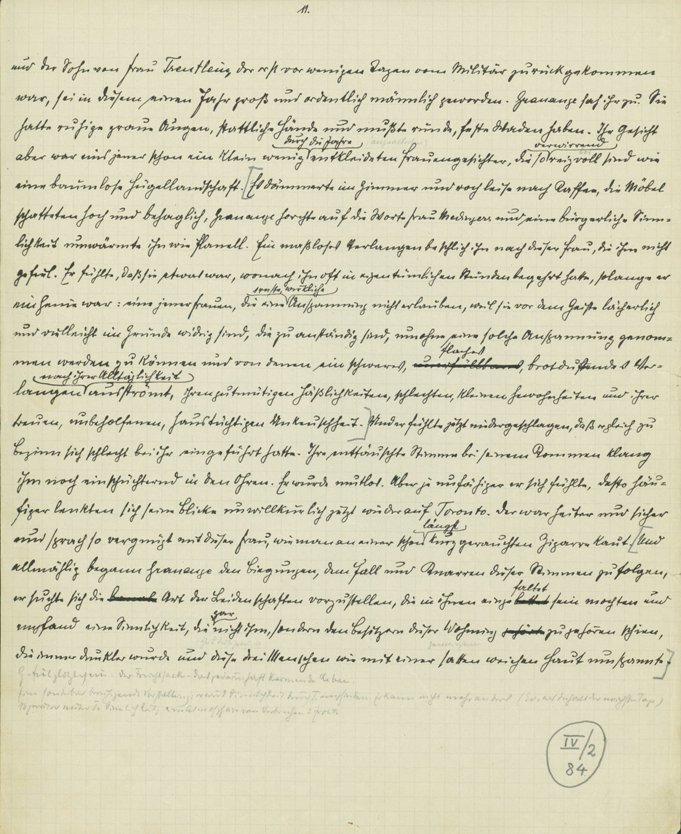 11.
und der Sohn von Frau Trentling der erst vor wenigen Tagen vom Militär zurückgekommen
war, sei in diesem einen Jahr groß und ordentlich männlich geworden. Grauauge sah ihr zu. Sie
hatte ruhige graue Augen, stattliche Hände und mußte runde, feste Waden haben. Ihr Gesicht
durch die Jahre verwirrend
aber war eins jener schon ein klein wenig entkleideten Frauengesichter, die so reizvoll sind wie
eine baumlose Hügellandschaft. [Es dämmerte im Zimmer und roch leise nach Kaffee, die Möbel
schatteten hoch und behaglich, Grauauge horchte auf die Worte Frau und eine bürgerliche Sinn-
lichkeit umwärmte ihn wie Flanell. Ein maßloses Verlangen beschlich ihn nach dieser Frau, die ihm nicht
gefiel. Er fühlte, daß sie etwas war, wonach ihn oft in eigentümlichen Stunden begehrt hatte, solange er
ein Genie war: eine jener Frauen, die eine Anspannung nicht erlauben, weil sie vor dem Geiste lächerlich
und vielleicht im Grunde widrig sind, die zu anständig sind, um ohne eine solche Anspannung genom-
flaches
men werden zu können und von denen ein schweres, brotduftendes Ver-
nach ihrer Alltäglichkeit
langen ausströmt, ihren gutmütigen Häßlichkeiten, schlechten, kleinen Gewohnheiten und ihrer
treuen, unbeholfenen, haustüchtigen Unkeuschheit.] Und er fühlte jetzt niedergeschlagen, daß er gleich zu
Beginn sich schlecht bei ihr eingeführt hatte. Ihre enttäuschte Stimme bei seinem Kommen klang
ihm noch einschüchternd in den Ohren. Er wurde mutlos. Aber je unfähiger er sich fühlte, desto häu-
figer lenkten sich seine Blicke unwillkürlich jetzt wieder auf Toronto. Der war heiter und sicher
längst
und sprach so vergnügt mit dieser Frau, wie man an einer schon kurz gerauchten Zigarre kaut. [Und
allmählig begann Grauauge den Biegungen, dem Fall und Knarren dieser Stimmen zu folgen,
faltet
er suchte sich die Art der Leidenschaften vorzustellen, die in ihnen einge sein mochten und
gar
empfand eine Sinnlichkeit, die nicht ihm, sondern den Besitzern dieser Wohnung zu gehören schien,
die immer dunkler wurde und diese drei Menschen wie mit einer satten weichen Haut umspannte.]
IV/2
84